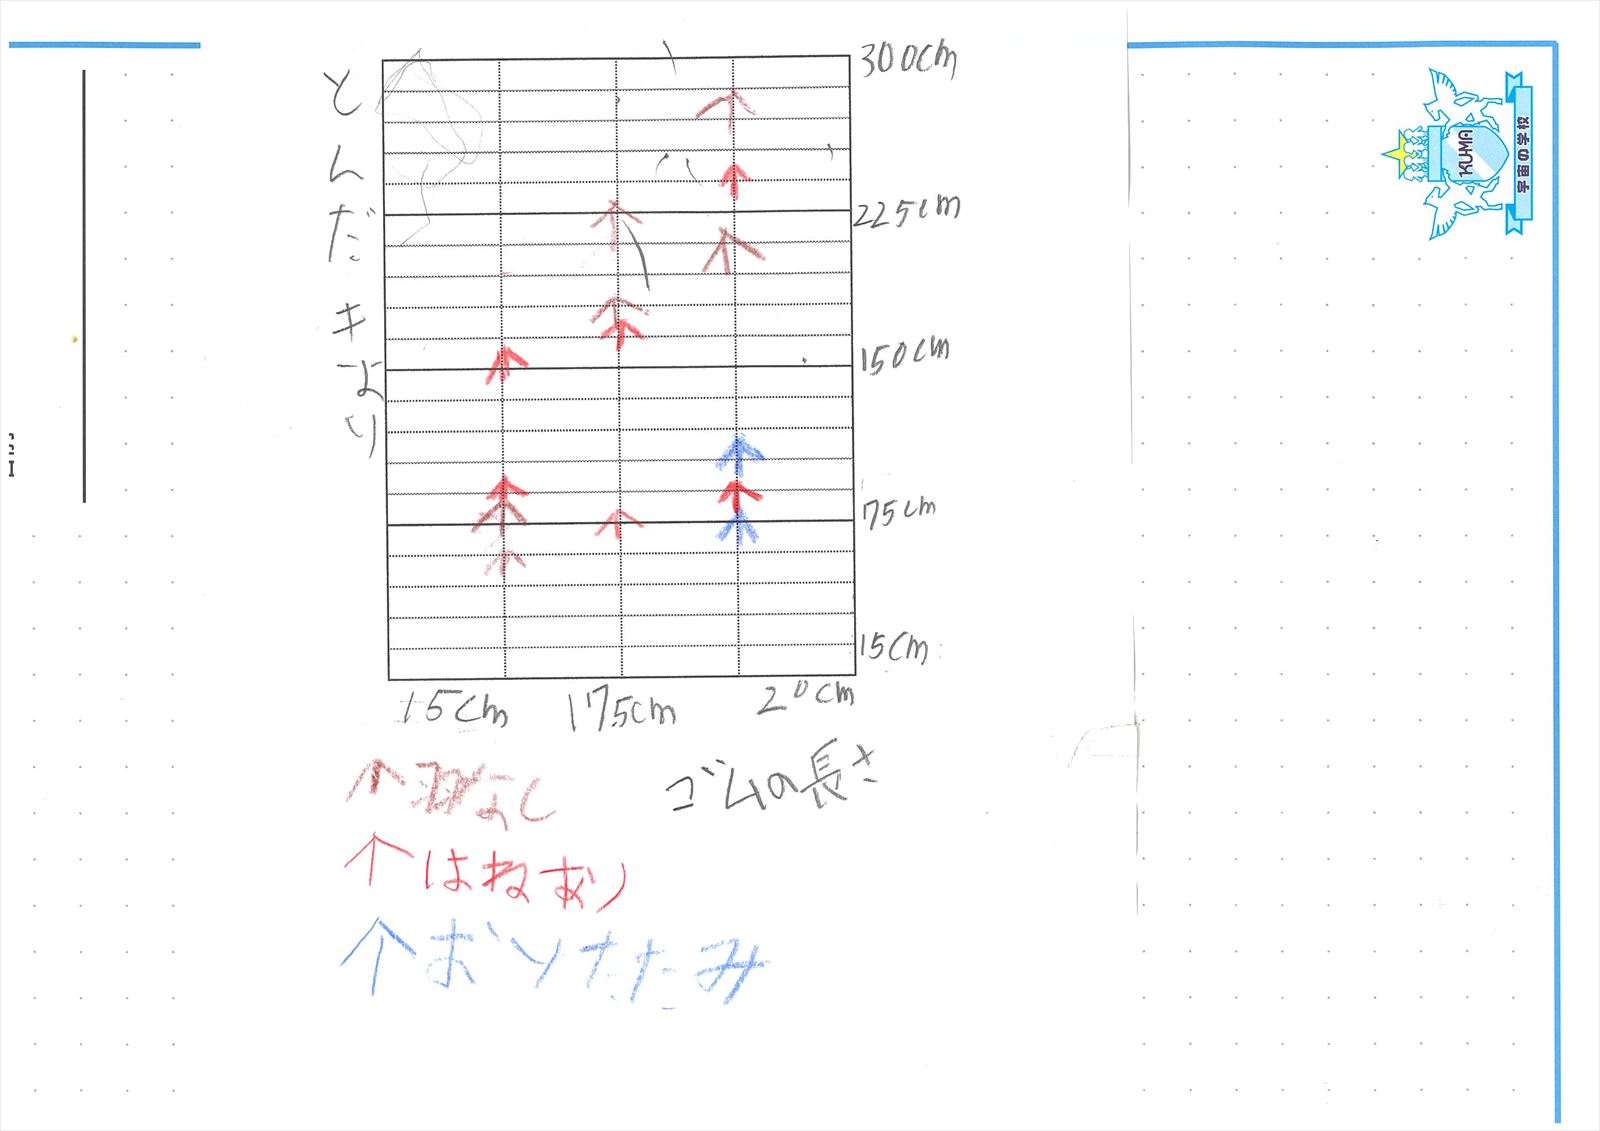 とんだキョり
300cm
225cm
150cm
75cm
15cm
15cm
175cm
20cm
ゴムの長さ
↑羽なし
↑はねあり
↑おりたたみ
KU-MA
宇宙の学校